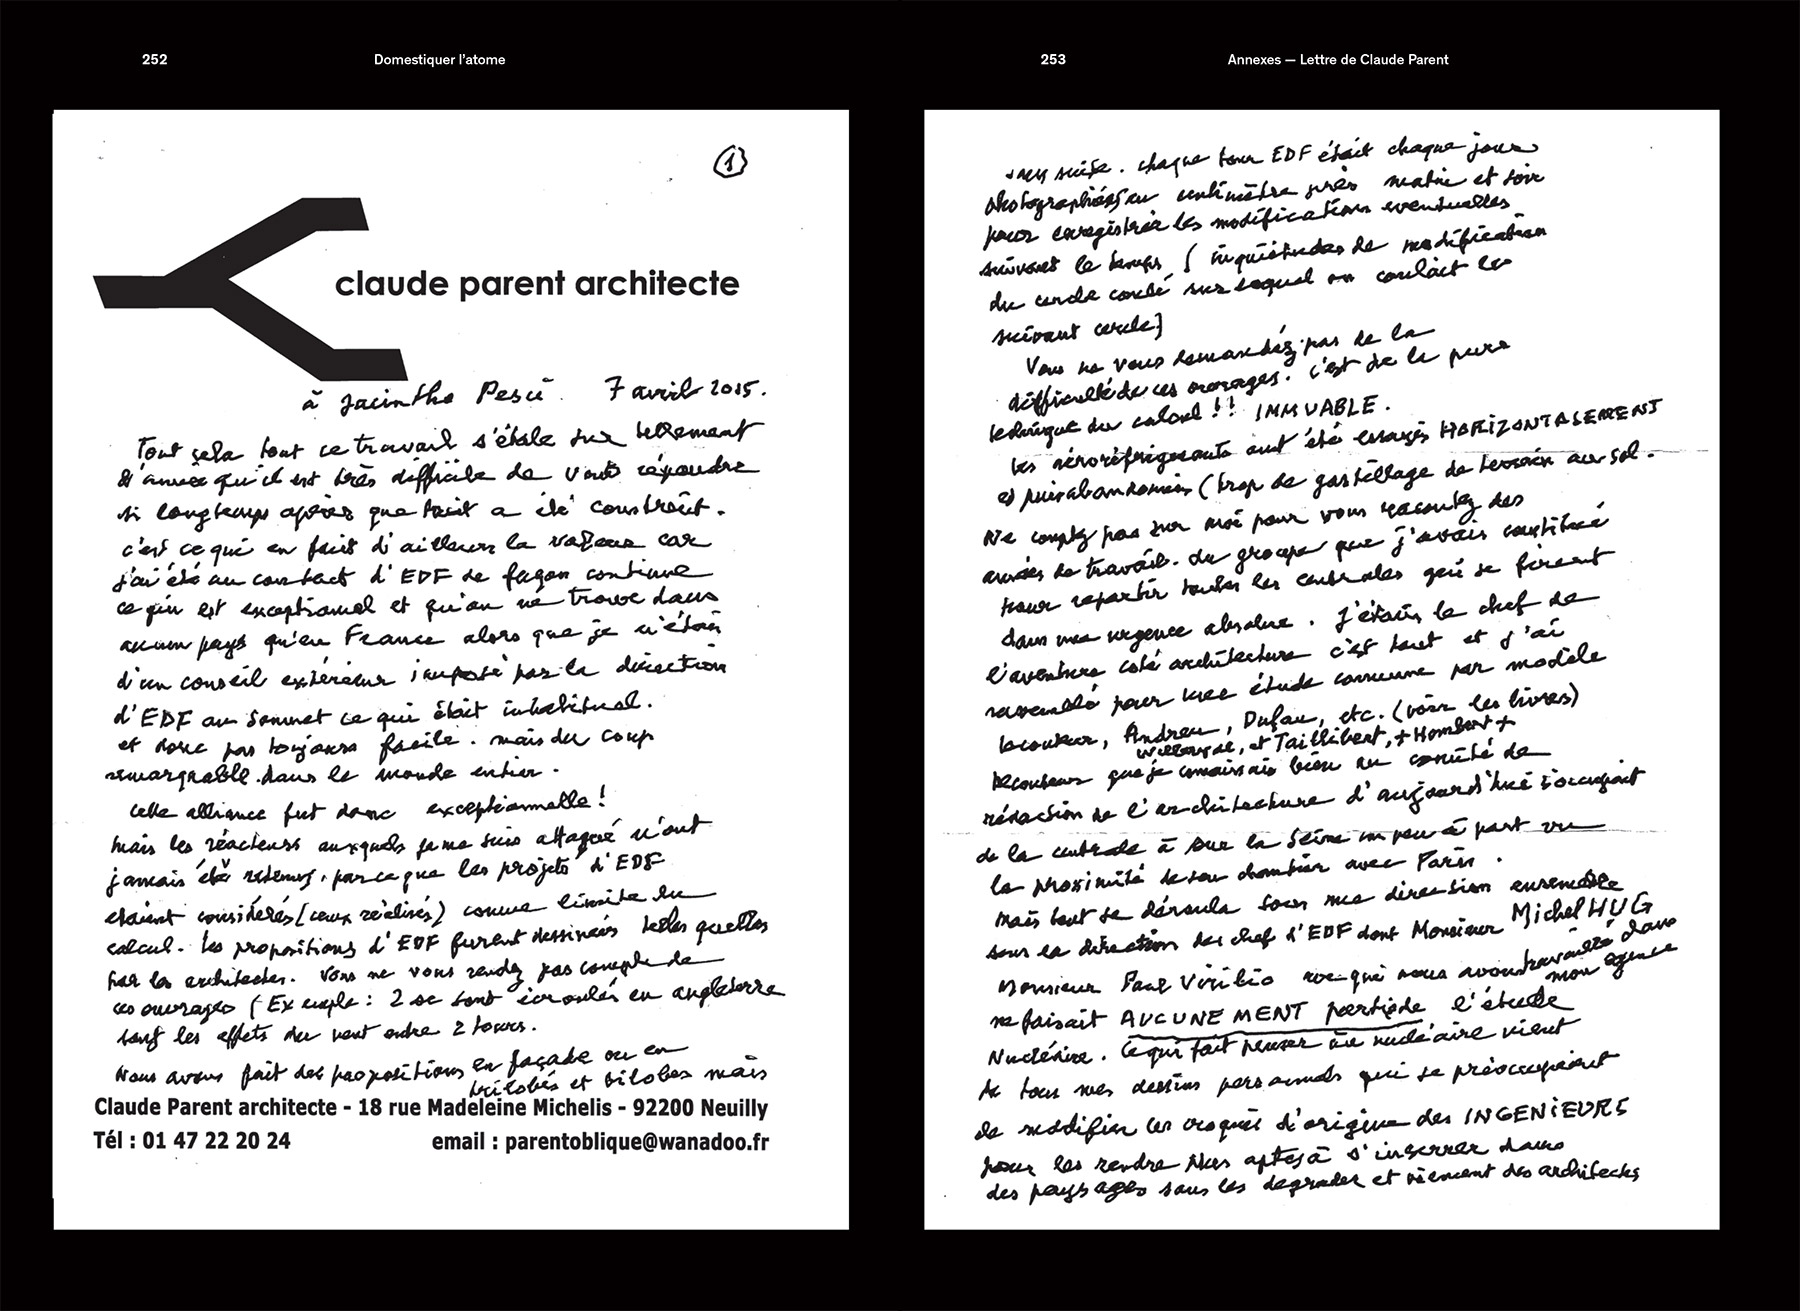 252
Domestiquer l'atome
1
claude parent architecte
à Jacintha Pesci 7 avril 2015.
Tout cela tout ce travail s'étale sur tellement
d'années qu'il est très difficile de vous répondre
si longtemps après que tout a été construit.
c'est ce qui en fait d'ailleurs la valeur car
j'ai été au contact d'EDF de façon continue
ce qui est exceptionnel et qu'on ne trouve dans
aucun pays qu'en France alors que je n'étais
d'un conseil extérieur imposé par la direction
d'EDF au sommet ce qui était inhabituel.
et donc pas toujours facile. mais du coup
remarquable dans le monde entier.
cette alliance fut donc exceptionnelle !
mais les réacteurs auxquels je me suis attaqué n'ont
jamais été retenus, parce que les projets d'EDF
étaient considérés (ceux réalisés) comme limite en
calcul. Les propositions d'EDF furent dessinées telles quelles
par les architectes. Vous ne vous rendez pas compte de
ces ouvrages (Exemple : 2 se sont écroulés en angleterre
sous les effets du vent entre 2 tours.
Nous avons fait des propositions en façade ou en
trilobés et bilobes mais
Claude Parent architecte - 18 rue Madeleine Michelis - 92200 Neuilly
Tél : 01 47 22 20 24
email : parentoblique@wanadoo.fr
253
Annexes — Lettre de Claude Parent
sans suite. chaque tour EDF était chaque jour
photographiées au centimètre près matin et soir
pour enregistrer les modifications eventuelles
suivant le temps ( inquiétudes de modification
du cercle coulé sur lequel on coulait le
suivant cercle)
Vous ne vous demandez pas de la
difficulté de ces ouvrages. C'est de la pure
technique du calcul !! IMMUABLE.
Les aéroréfrigerants ont été essayés HORIZONTALEMENT
et puis abandonnés (trop de gaspillage de terrain au sol.
Ne comptez pas sur moi pour vous racontez des
années de travail. du groupe que j'avais constitué
pour repartir toutes les centrales qui se firent
dans une urgence absolue. J'étais le chef de
l'aventure coté architecture c'est tout et j'ai
rassemblé pour une étude commune par modèle
Lecouteur, Andreu, Dufau, etc. (voir les livres)
Willerval, et Taillibert, + Homberg +
Lecouteur que je connaissais bien au comité de
rédaction de l'architecture d'aujourd'hui s'occupait
de la centrale à sur la Seine un peu à part vu
la proximité de son chantier avec Paris.
Mais tout se déroula sous ma direction ensemble
sous la direction des chef d'EDF dont Monsieur Michel HUG
Monsieur Paul Virilio avec qui nous avons travaillé dans
mon agence
ne faisait AUCUNEMENT partie de l'étude
Nucléaire. Ce qui fait penser au nucléaire vient
de tous mes dessins personnels qui se préoccupaient
de modifier les croquis d'origine des INGENIEURS
pour les rendre plus aptes à s'inserrer dans
des paysages sans les degrader et viennent des architectes